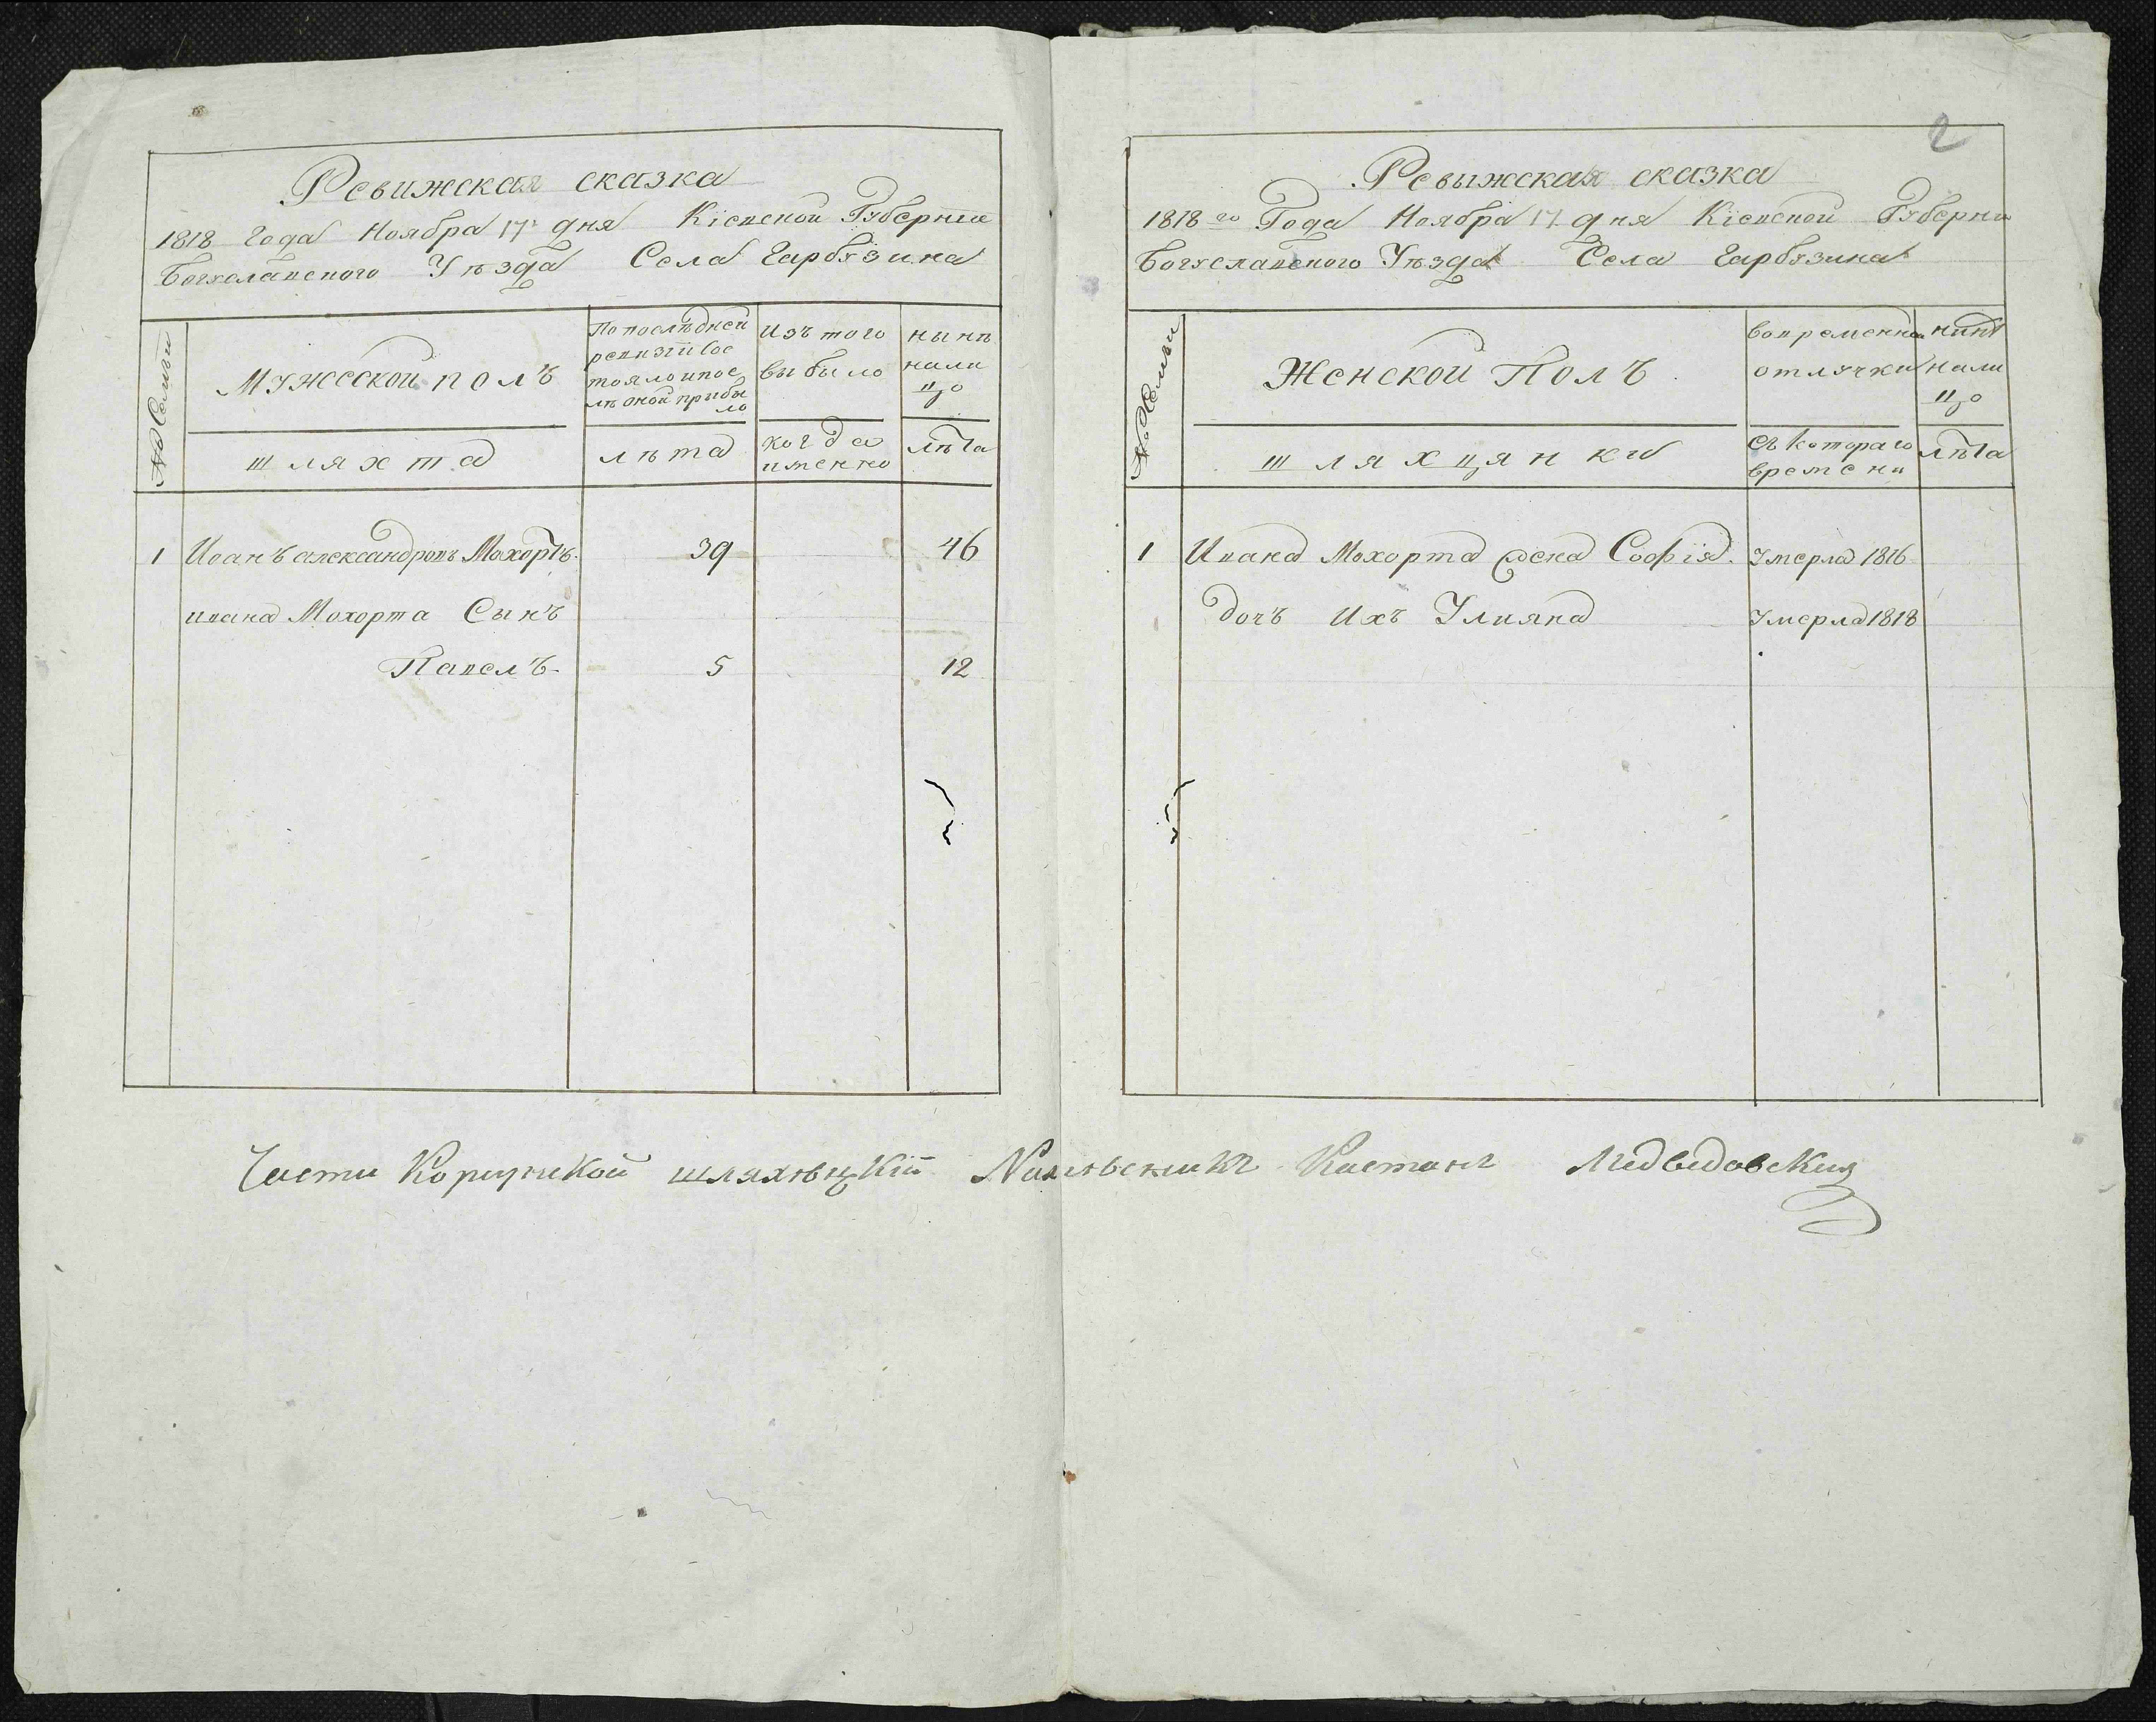 Ревижская сказка
1818 года Ноября 17 дня Кіевской Губерніи
Богуславского Уѣзда Села Гарбузина
№ Семьи
Мужеской полъ
По послѣдней
ревизіи сос
тояло и пос
лѣ оной прибы
ло
Изъ того
выбыло
нынѣ
нали
цо
шляхта
лѣта
когда
именно
лѣта
1 Иванъ александровъ Мохортъ. 39 46
ивана Мохорта Сынъ
Павелъ 5 12
2
Ревыжская сказка
1818го Года Ноября 17 дня Кіевской Губерни
Богуславского Уѣзда Села Гарбузина
№ Семьи
Женской Полъ
во временно
отлучки
нинѣ
нали
цо
шляхцянки
съ котораго
времени
лѣта
1 Ивана Мохорта жена Софія. Умерла 1816
дочъ Ихъ Улияна Умерла 1818
Части Корсунской шляхѣцкій Начельникъ Каетанъ Медведовский